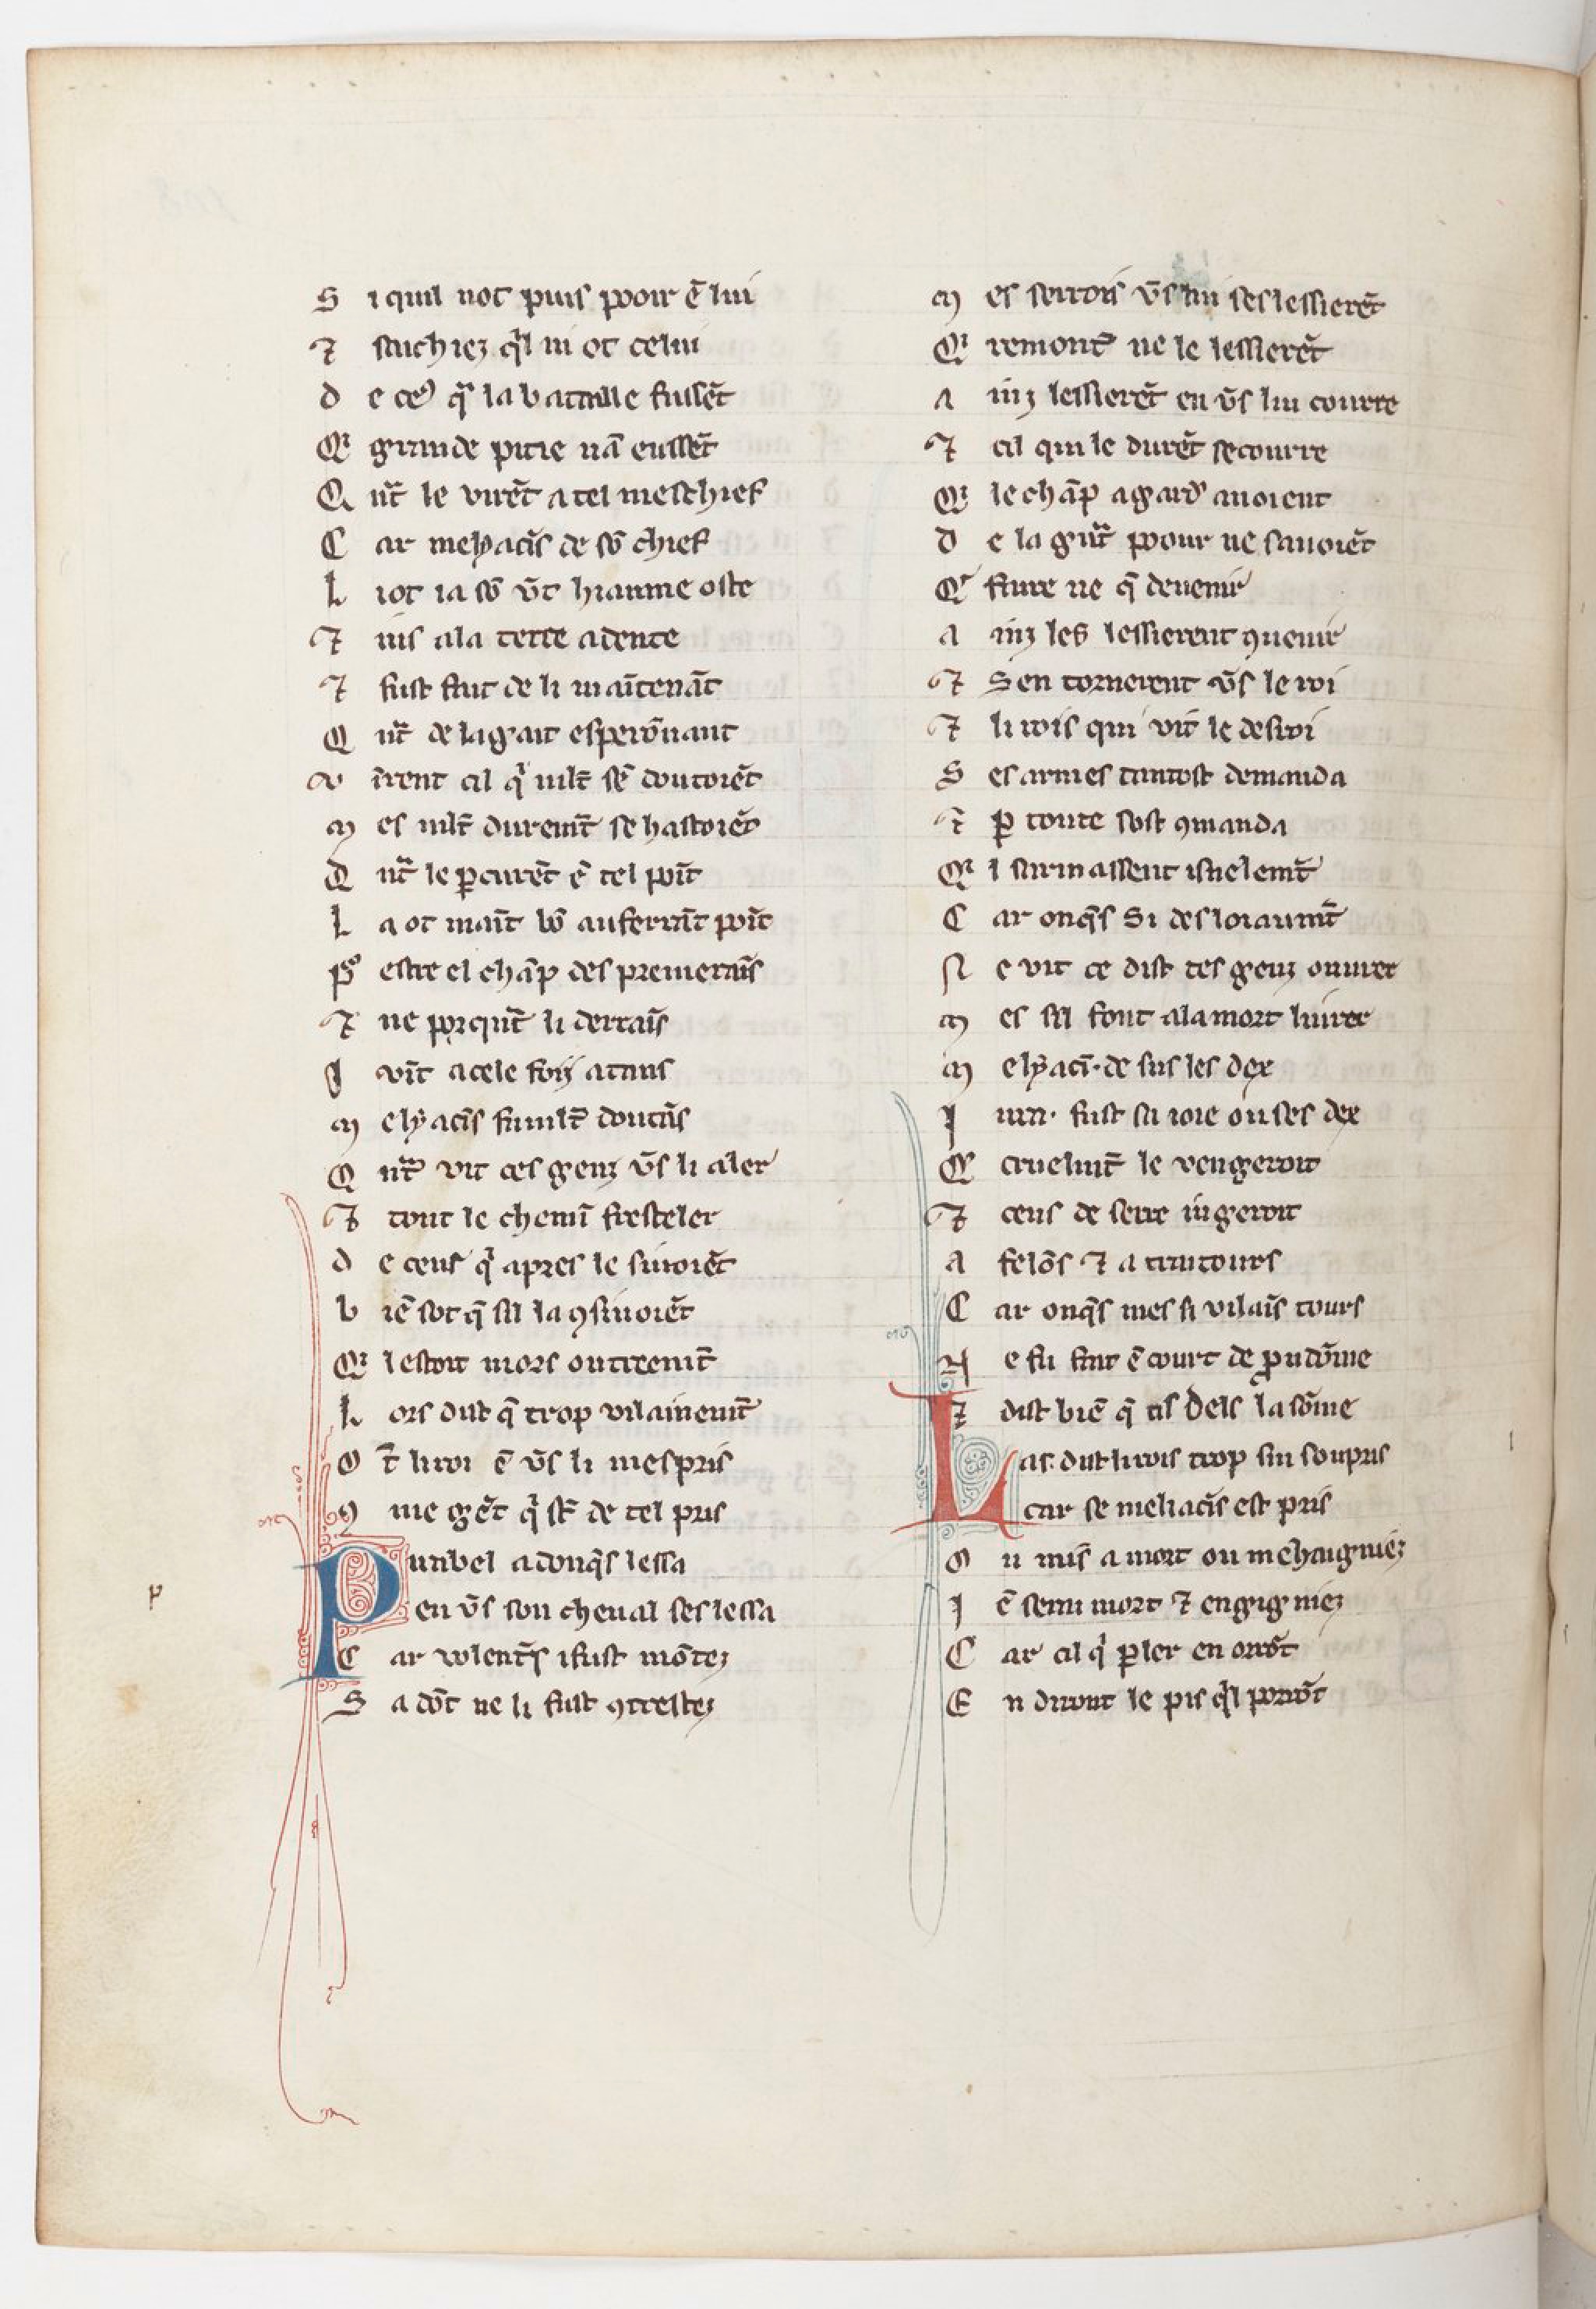 S i quil not puis pooir ē lui
⁊ sachiez ql̍ ni ot celui
d e ceꝰ q̍ la bataille fuisset̄
Qͥ grande pitie nā eussēt
Q nt̄ le virēt a tel meschief
C ar melyacīs de sō chief
L i ot ia sō vt̄ hiaume oste
⁊ mis a la terre adente
⁊ fust fait de li maītenāt
Q nt̄ de lagait esperōnant
v īrent cil q̍ mlt̄ se doutoiēt
m es mlt̄ durem̄t se hastoiēt
Q nt̄ le ꝑcurēt ē tel poīt
L a ot maīt bō auferrāt poīt
Pͦ estre el chāp des premeraīs
⁊ ne porquāt li derraīs
I vīt a cele foiz a tans
m elyacīs fu mlt̄ doutās
Q nt̄ vit ces genz v̄s li aler
⁊ tout le chemī fresteler
d e ceus q̍ apres le siuoiēt
b iē sot q̄ sil la ꝯsiuoiēt
Qͥ l estoit mors outreem̄t
L ors dist q̄ trop vilainem̄t
O t̄ li roi ē v̄s li mespris
ꝯ me gēt q̍ st̄ de tel pris
P unbel adonqs̄ lessa
p en v̄s son cheual ses lessa
C ar volentīs i fust mōtez
S adōt ne li fust ꝯtrestez
m es serrois v̄s lui ses lessierēt
Qͥ remontͤ ne le lessierēt
a inz lessierēt en v̄s lui courre
⁊ cil qui le durēt secourre
Qͥ le chāp a gardͤ auoient
d e la gn̄t poour ne sauoiēt
Qͤ faire ne q̄ deuenir
a inz les lessierent ꝯuenir
⁊ S en tornerent v̄s le roi
⁊ li rois qui vit le desroi
S es armes tantost demanda
⁊ ꝑ toute sost ꝯmanda
Qͥ l sarmassent isnelem̄t
C ar onqs̄ si desloiaum̄t
N e vit ce dist tes genz ouurer
m es sil sont a la mort liurer
m elyacī· de sus les dex
I ura· fust sa ioie ou ses dex
Qͤ cruelm̄t le vengeroit
⁊ ceus de serre iugeroit
a felōs ⁊ a traitours
C ar onqs̄ mes si vilaīs tours
N e fu fait ē court de ꝓudōme
⁊ dist biē q̄ cis dels la sōme
L as dist li rois trop sui soupris
car se meliacīs est pris
O u mis a mort ou mehaigniez
I ē serai mort ⁊ engigniez
C ar cil q̍ ꝑler en orrōt
E n diront le pis ql̍ porrōt
p